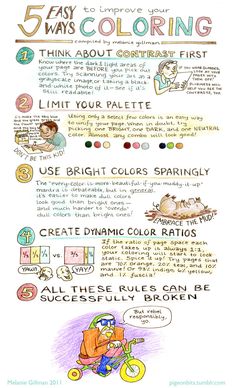 5 EASY WAYS to improve your COLORING
compiled by melanie gillman
1 THINK ABOUT CONTRAST FIRST
Know where the dark & light areas
of your page are BEFORE you pick out
colors. Try scanning your art as a
grayscale image or taking a black-
and-white photo of it - see if it's
still readable!
2 LIMIT YOUR PALETTE
Using only a select few colors is an easy way
to unify your page. When in doubt, try
picking one BRIGHT, one DARK, and one NEUTRAL
color. Almost any combo will look good!
DON'T BE THIS GUY
3 USE BRIGHT COLORS SPARINGLY
The "every-color-is-more-beautiful-if-you-muddy-it-up"
mantra is debatable, but in general,
it's easier to make dull colors
look good than bright ones -
and much harder to overdo
dull colors than bright ones!
EMBRACE THE MUD!
4 CREATE DYNAMIC COLOR RATIOS
If the ratio of page space each
color takes up is always 1:1,
your coloring will start to look
static. Spice it up! Try pages that
are 70% orange, 20% tea, and 10%
mauve! Or 93% indigo, 6% yellow,
and 1% fuschia!
1/3 1/3 1/3
YAWN!
YAY!
5 ALL THESE RULES CAN BE
SUCCESSFULLY BROKEN
But rebel
responsibly,
yo.
Melanie Gillman 2011
pigeonbits.tumblr.com